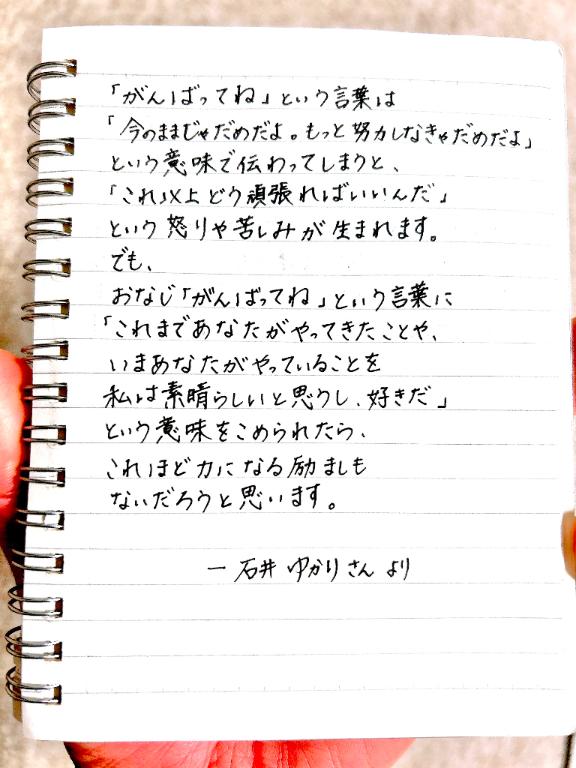 「がんばってね」という言葉は
「今のままじゃだめだよ。もっと努力しなきゃだめだよ」
という意味で伝わってしまうと、
「これ以上どう頑張ればいいんだ」
という怒りや苦しみが生まれます。
でも、
おなじ「がんばってね」という言葉に
「これまであなたがやってきたことや、
いまあなたがやっていることを
私は素晴らしいと思うし、好きだ」
という意味をこめられたら、
これほど力になる励ましも
ないだろうと思います。
― 石井 ゆかりさん より